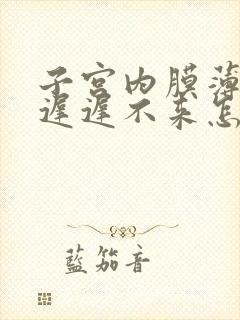 子宫内膜薄
遲遲不来怎
藍笳音